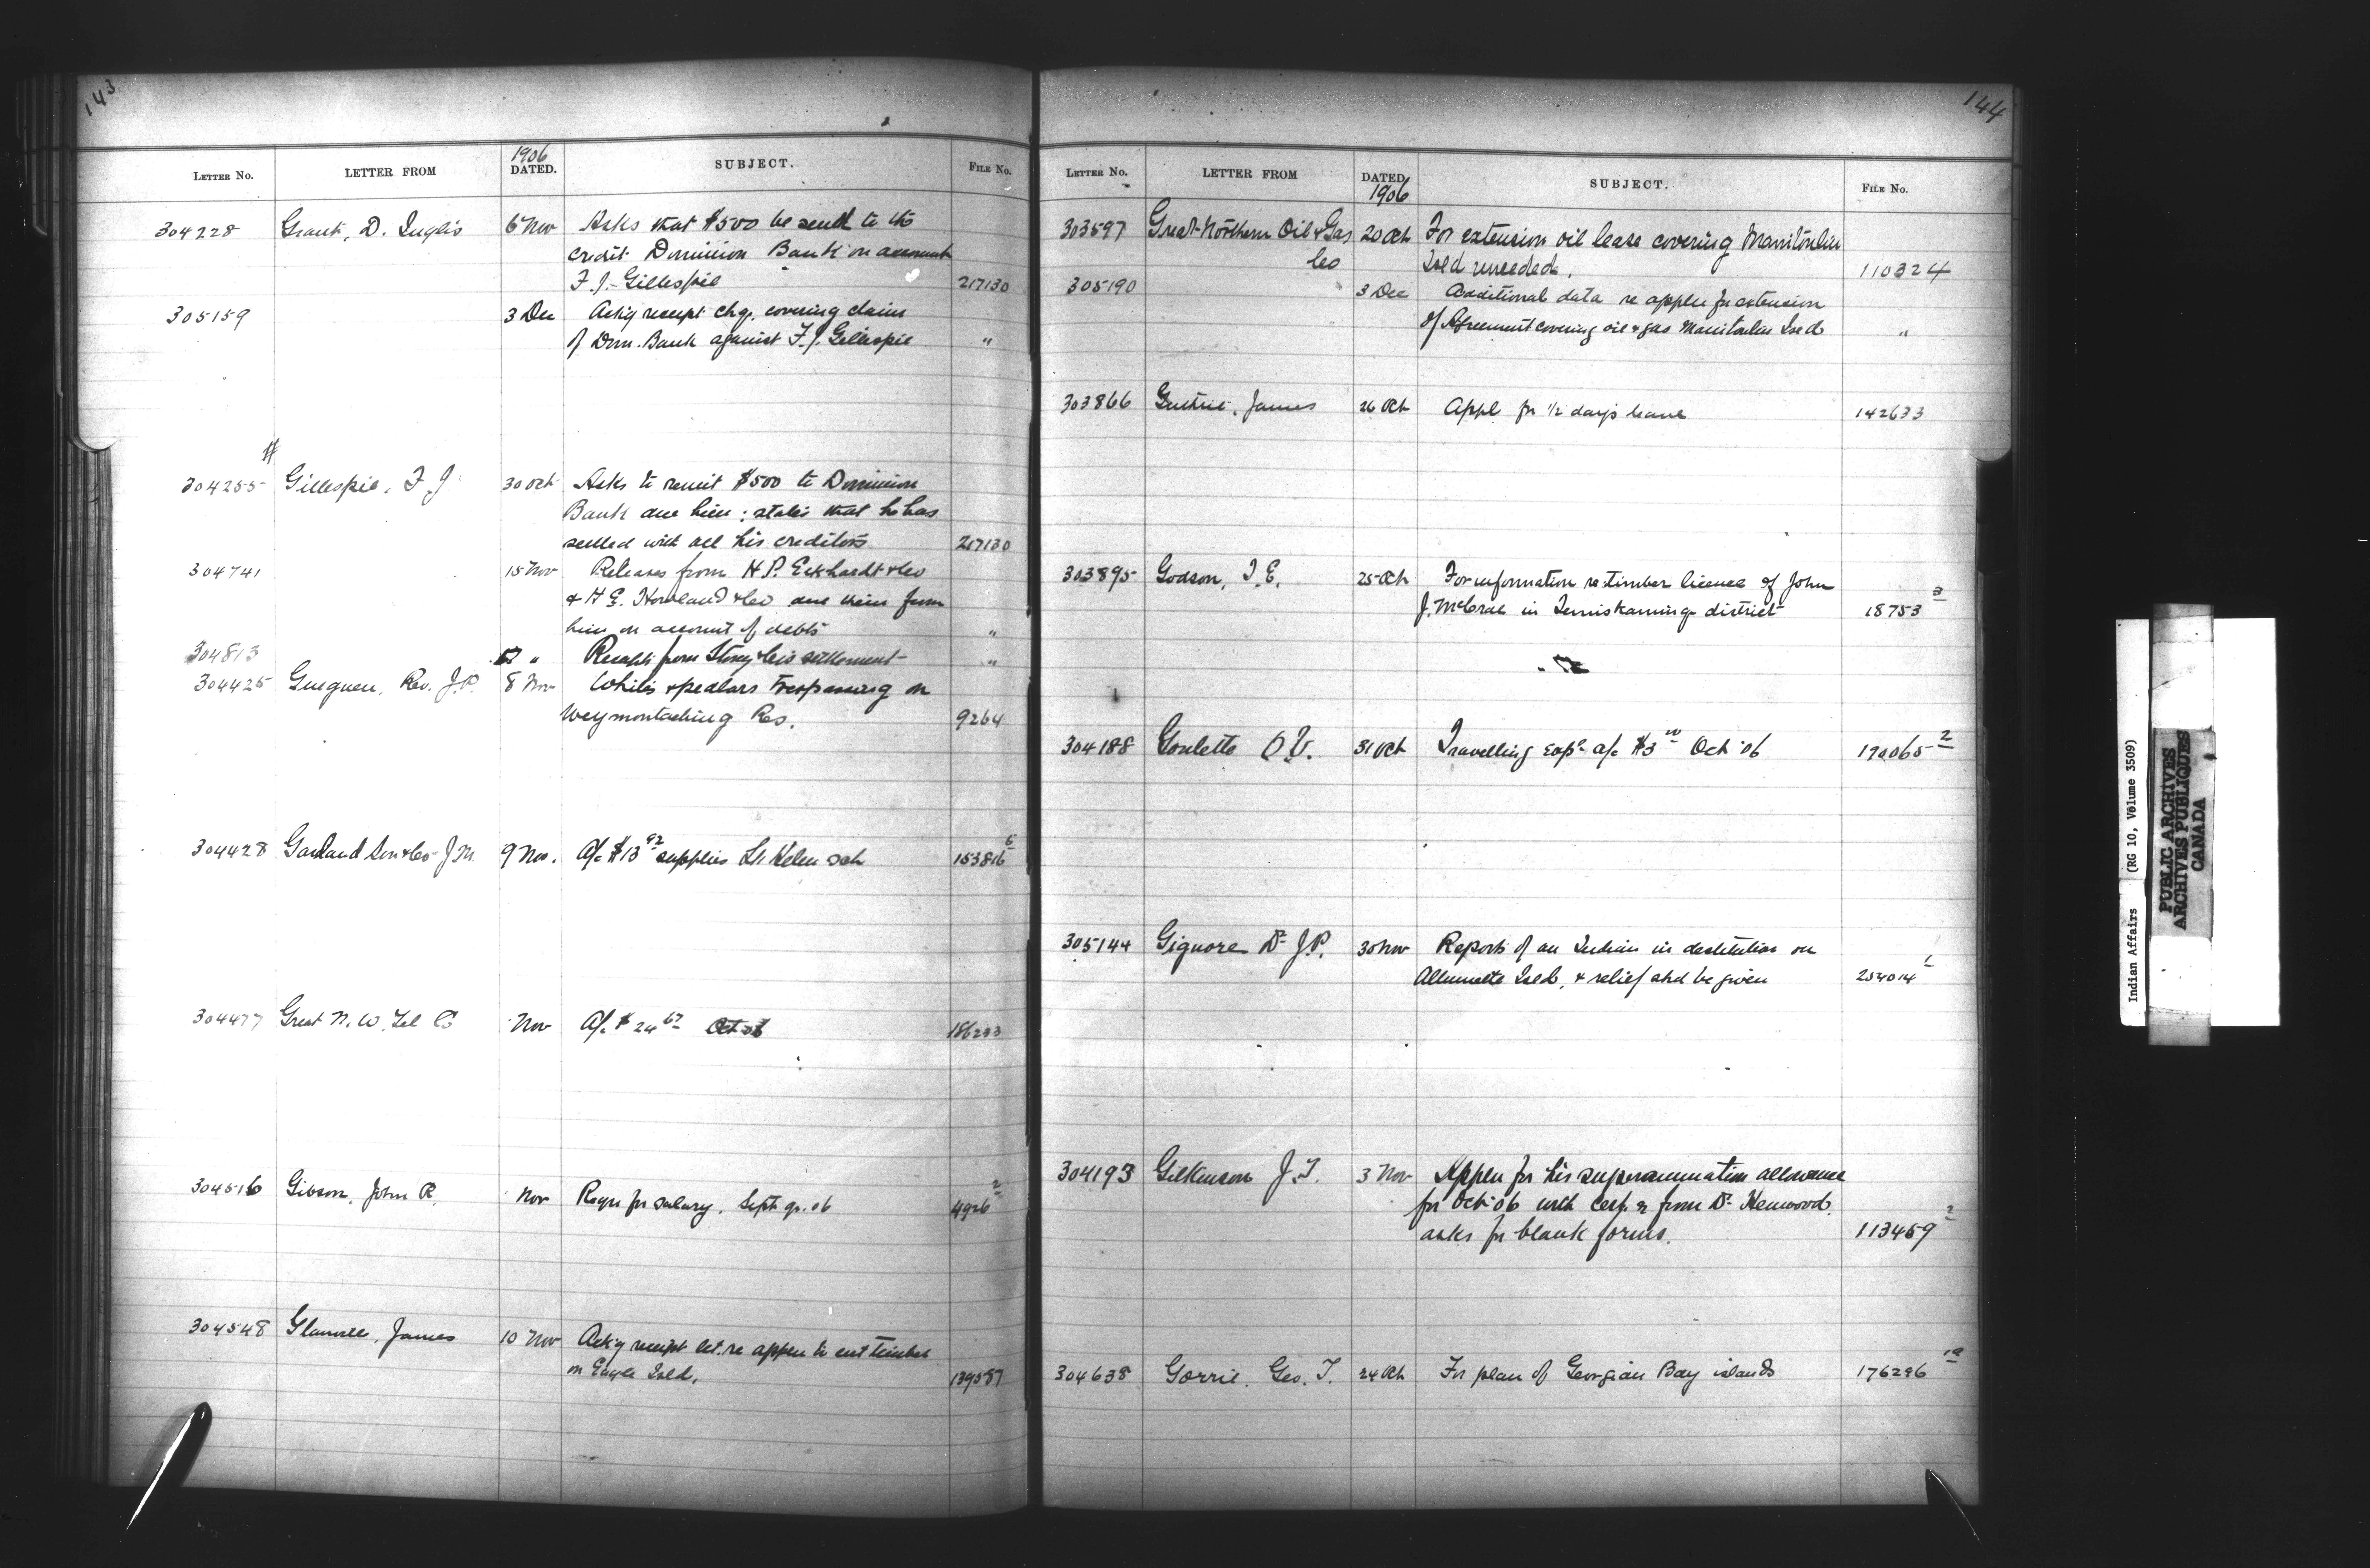 143
LETTER NO. LETTER FROM 1906 DATED. SUBJECT. FILE NO.
304228 Grant, D. Inglis 6 Nov Asks that $500 be send to the
credit Dominion Bank on account
F. J. Gillespie 217130
305159 3 Dec Ackg receipt chq. covering claim
of Dom. Bank against F. J. Gillespie "
#
304255 Gillespie, F J 30 Oct Asks to remit $500 to Dominion
Bank due him; states that he has
settled with all his creditors 217130
304741 15 Nov Releases from H. P. Eckhardt & Co
& H E. Howland & Co due them from
him on account of debts "
304813 " Receipt from settlement "
304425 Gueguen, Rev. J. P. 8 Nov Whites & pedlars trespassing on
Weymontaching Res. 9264
304428 Garland Son & Co J M. 9 Nov. A/c $13 92 supplies St. Helen sch 153816 5
304477 Great N. W. Tel Co Nov A/c $24 67 Oct 06 186233
304516 Gibson, John R. Nov Reqn for salary, Sept qr. 06 4926 2
304548 Glanvill, James 10 Nov Ackg receipt let. re appln to cut timber
on Eagle Isld. 139587
144
LETTER NO. LETTER FROM DATED 1906 SUBJECT. FILE NO.
303597 Great Northern Oil & Gas 20 Oct For extension oil lease covering Manitoulin
Co Isld unceded. 110324
305190 3 Dec Additional data re appln for extension
of Agreement covering oil & gas Manitoulin Isld "
303866 Guthrie, James 26 Oct Appl for 1/2 day's leave 142633
303895 Godson, T. E. 25 Oct For information re timber licence of John
J. McCrae in Temiskaming district 18753 3
304188 Goulette O V. 31 Oct Travelling exps a/c $3 00 Oct 06 190065 2
305144 Gignore Dr J P. 30 Nov Reports of an Indian in destitution on
Allumette Isld, & relief shd be given 254014 1
304193 Gilkinson J. T. 3 Nov Appln for his superannuation allowance
for Oct 06 with from Dr Henwood.
asks for blank forms. 113459 2
304638 Gorrie, Geo. T. 24 Oct For plan of Georgian Bay islands 176296 1a
Indian Affairs (RG 10, Volume 3509)
PUBLIC ARCHIVES
ARCHIVES PUBLIQUES
CANADA